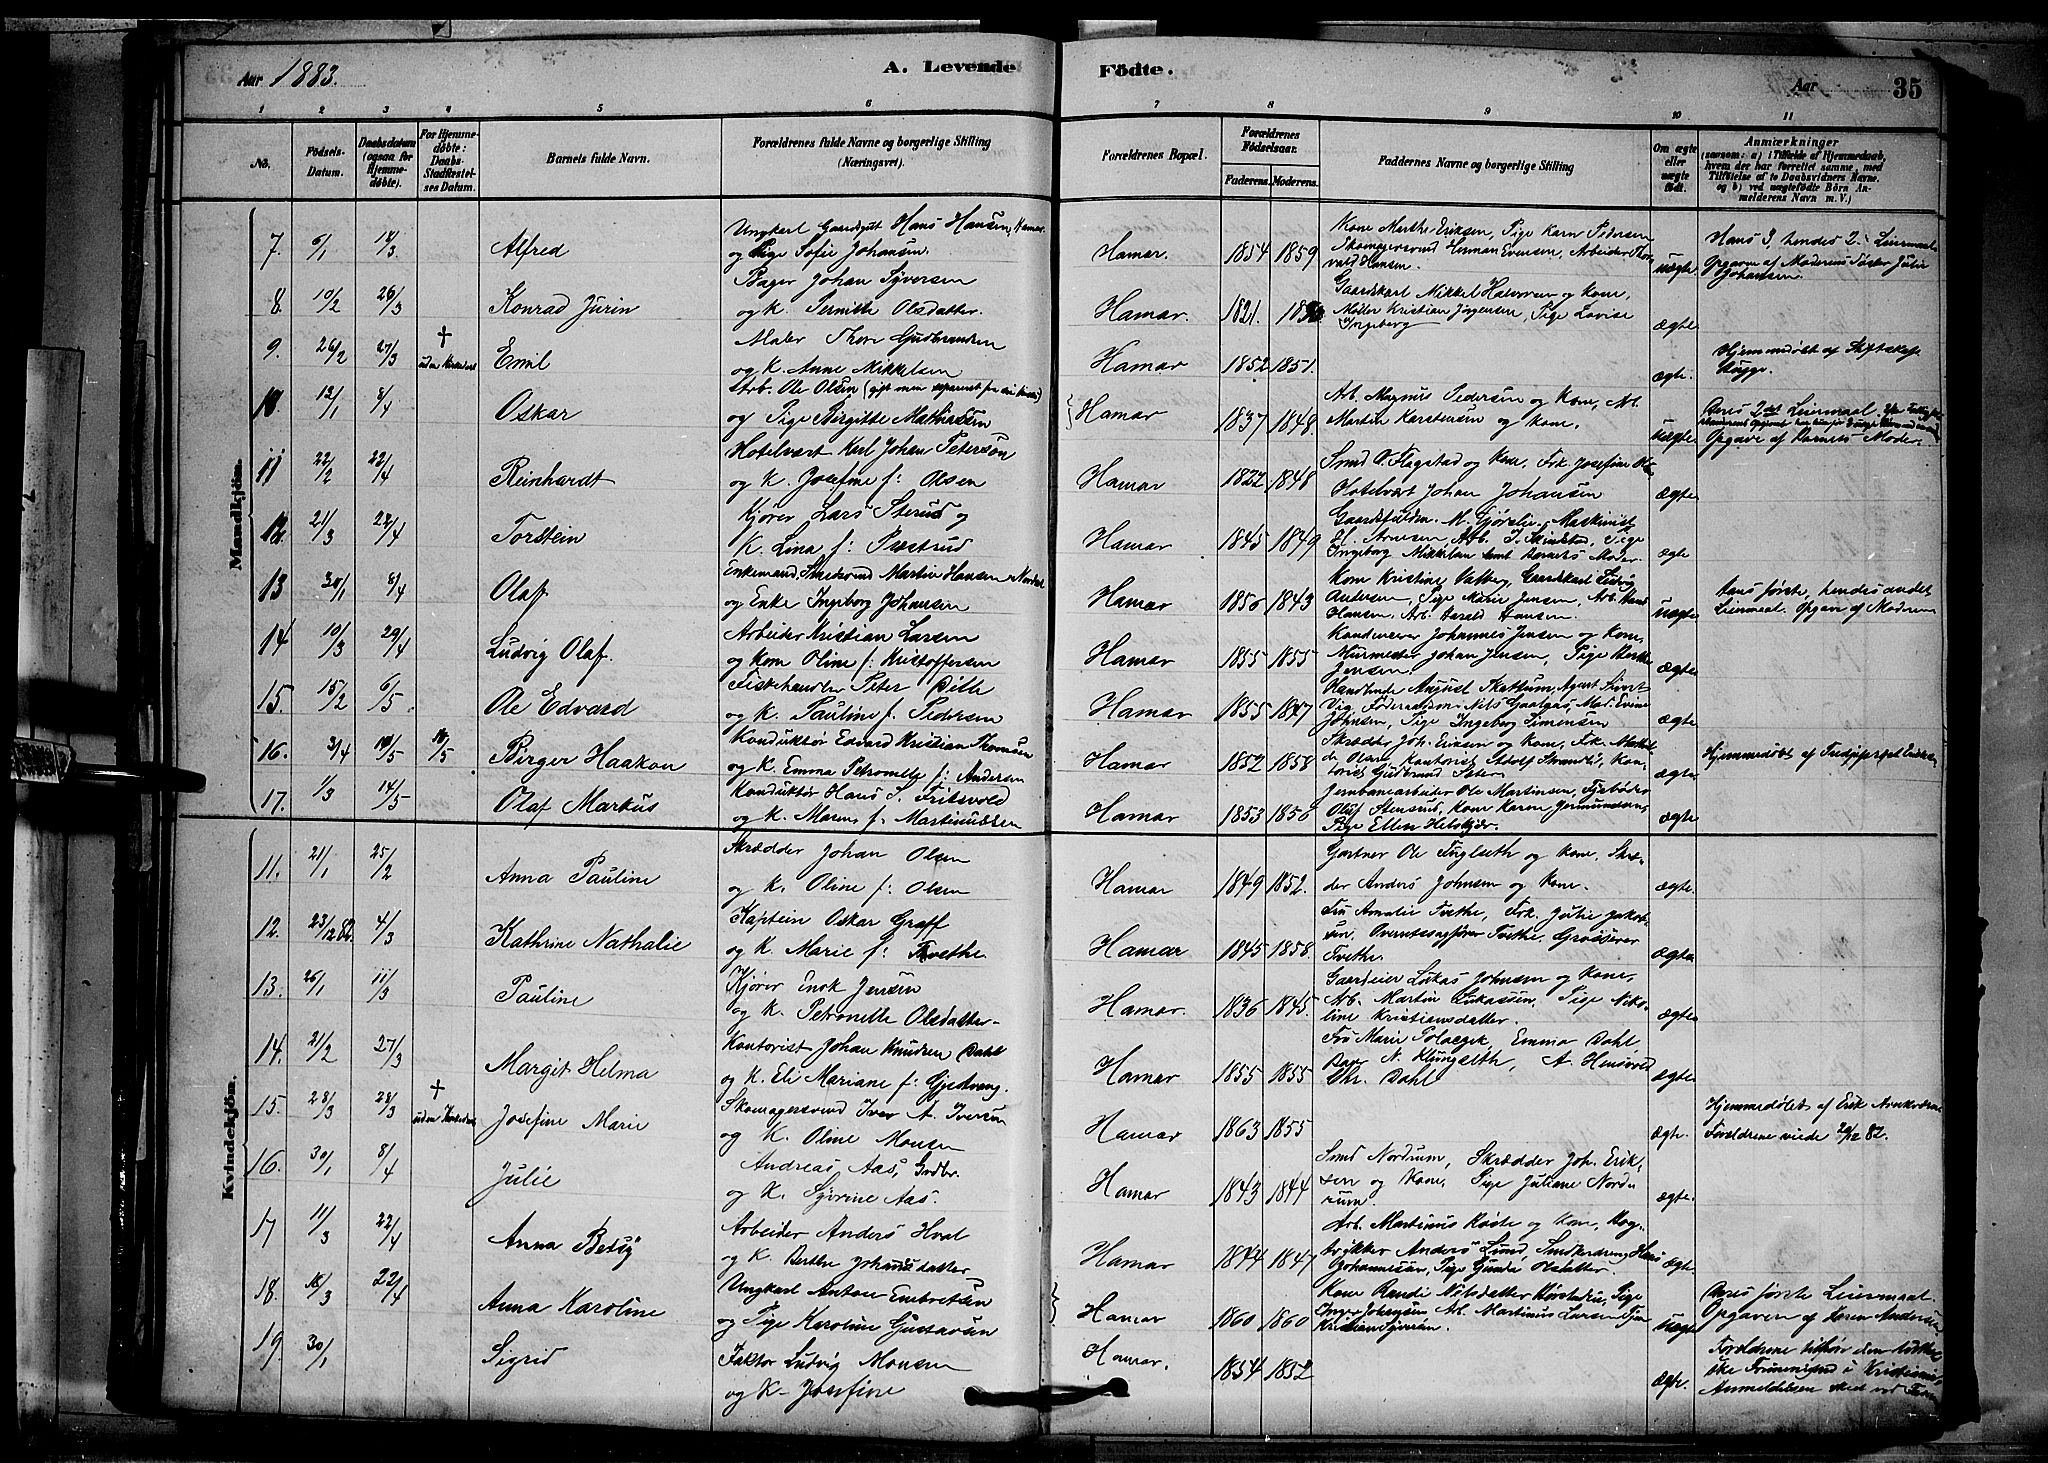 Aar 1883.
A. Levende Födte.
Aar
35
1 2 3 4 5 6 7 8 9 10 11
No.
Födsels-Datum.
Daabsdatum (ogsaa for Hjemmedøbte).
For Hjemmedøbte: Daabs-Stadfæstelses Datum.
Barnets fulde Navn.
Forældrenes fulde Navne og borgerlige Stilling (Næringsvei).
Forældrenes Bopæl.
Forældrenes Födselsaar.
Faderens. Moderens.
Faddernes Navne og borgerlige Stilling
Om ægte eller uægte födt.
Anmærkninger
(saasom: a) i Tilfælde af Hjemmedaab, hvem der har forrettet samme, med Tilföielse af to Daabsvidners Navne, og b) ved uægtefödte Börn Anmelderens Navn m. V.)
Mandkjön.
7. 6/1 14/3 Alfred
Ungkarl Gaardsgut Hans Hansen, Hamar
og Pige Sofie Johansen.
Hamar. 1854 1859
Kone Marthe Eriksen, Pige Karn Pedersen
Skomagersvend Herman Evensen, Arbeider Thorvald Hansen.
uægte
Hans 3, hendes 2. Leiermaal
Opgave af Moderens Søster Julie Johansen.
8. 10/2 26/3 Konrad Jurin
Bager Johan Syversen
og K. Pernille Olsdatter.
Hamar. 1821.
Gaardskarl Mikkel Halvorsen og Kone,
Møller Kristian Jørgensen, Pige Lovise Ingeborg
ægte
9. 26/2 27/3 † Emil
Maler Thor Gudbrandsen
og K. Anne Mikkelsen
Hamar 1852 1851.
ægte.
Hjemmedøbt af Stiftskap. Hygge.
10. 12/1 8/4 Oskar
Arb. Ole Olsen (gift men separeret fra sin Kone)
og Pige Birgitte Mathiassen
Hamar 1837 1848.
Arb. Magnus Pedersen og Kone, Arb.
Martin Karstensen og Kone.
uægte
Deres 2det Leiermaal.
Opgave af Barnets Moder.
11 22/2 22/4 Reinhardt
Hotelvært Karl Johan Petersen
og K. Josefine f: Olsen
Hamar 1822 1848
Smed O. Flagstad og Kone, Frk. Josefine
Hotelvært Johan Johansen
ægte
12. 21/3 22/4 Torstein
Kjører Lars Sterud og
K. Lina f: Præstrud
Hamar 1845 1849
M. Gjørslie, Maskinist
Arnesen, Arb. J. Skindstad, Pige
Ingeborg Mikkelsen samt Barnets Moder
ægte
13 30/1 8/4 Olaf
Enkemand, Smedsvend Martin Hansen
og Enke Ingeborg Johansen
Hamar 1856 1843
Kone Kristine Valberg, Gaardskarl Ludvig
Andersen, Pige Marie Jensen, Arb. Hans
Hansen, Arb. Harald Hansen.
uægte
Hans første, hendes andet
Leiermaal. Opgave af Moderen
14 10/3 29/4 Ludvig Olaf.
Arbeider Kristian Larsen
og Kone Oline f: Kristoffersen
Hamar 1855 1855
Johannes Jensen og Kone,
Murmester Johan Jensen, Pige Berthe
Jensen.
ægte
15. 15/2 6/5 Ole Edvard
Fiskehandler Peter Bille
og K. Pauline f. Pedersen
Hamar 1855 1847
Handlende August Skattum, Agent
Nils Gaalaas, Mad. Evine
Johnsen, Pige Ingeborg Simensen
ægte
16. 3/4 14/5 14/5 Birger Haakon
Konduktør Edvard Kristian Thomsen
og K. Emma Petronelle f: Andersen
Hamar 1852 1858
Skrædder Joh. Eriksen og Kone, Frk. Mathilde
Olsen, Kontorist Adolf Strandli, Kontorist
Gudbrand
ægte
Hjemmedøbt af
17. 1/3 14/5 Olaf Markus
Konduktør Hans S. Fritsvold
og K. Maren f: Martinussen
Hamar 1853 1856
Jernbanearbeider Ole Martinsen, Fyrbøder
Oluf Stensrud, Kone Karen Gjermundsen,
Pige Ellen Helskjær.
ægte
Kvindekjön.
11. 21/1 25/2 Anna Pauline
Skrædder Johan Olsen
og K. Oline f: Olsen
Hamar 1849 1852.
Gartner Ole Fuglseth og Kone, Skrædder
Anders Johnsen og Kone.
ægte.
12. 23/12 82. 4/3 Kathrine Nathalie
Kaptein Oskar Graff
og K. Marie f: Tvethe
Hamar 1845 1858.
Fru Amalie Tvethe, Frk. Julie Jakobsen,
Overretssagfører Tvethe, Grosserer
Tvethe.
ægte
13. 26/1 11/3 Pauline
Kjører Enok Jensen
og K. Petronelle Olsdatter
Hamar. 1836 1845.
Gaardeier Lukas Johnsen og Kone,
Arb. Martin Lukassen, Pige Nikoline
Kristiansdatter.
ægte
14. 21/2 27/3 Margit Helma
Kontorist Johan Knudsen Dahl
og K. Eli Mariane f: Gjestvang.
Hamar 1855 1855
Fru Marie Polaczek, Emma Dahl
N. Klungseth, A.
Chr. Dahl
ægte
15. 28/3 28/3 † Josefine Marie
Skomagersvend Iver A. Iversen
og K. Oline Monsen
Hamar 1863 1855
ægte.
Hjemmedøbt af Erik
Forældrene viede 82.
16. 30/1 8/4 Julie
Andreas Aas, Grdbr.
og K. Syverine Aas.
Hamar 1843 1844
Smed Nordrum, Skrædder Joh. Eriksen
og Kone, Pige Juliane Nordrum.
ægte.
17 11/3 22/4 Anna Betsy
Arbeider Anders Hval
og K. Berthe Johansdatter
Hamar 1844 1847
Arb. Martinus Røste og Kone, Bogtrykker
Anders Lund, Smededreng Hans
Johannesen, Pige Gunda Olsdatter.
ægte
18. 16/3 22/4 Anna Karoline
Ungkarl Anton Embretsen
og Pige Karoline Gustavsen
Hamar 1860 1860
Kone Randi Nilsdatter Rørstadeie, Pige
Inger Johansen, Arb. Martinus Larsen,
Kristian Syversen.
uægte
Deres første Leiermaal.
Opgaven af Karen Andersen
19. 30/1 Sigrid
Faktor Ludvig Monsen
og K. Josefine
Hamar. 1854 1852
ægte.
Forældrene tilhører den
Anmeldelsen skeet ved